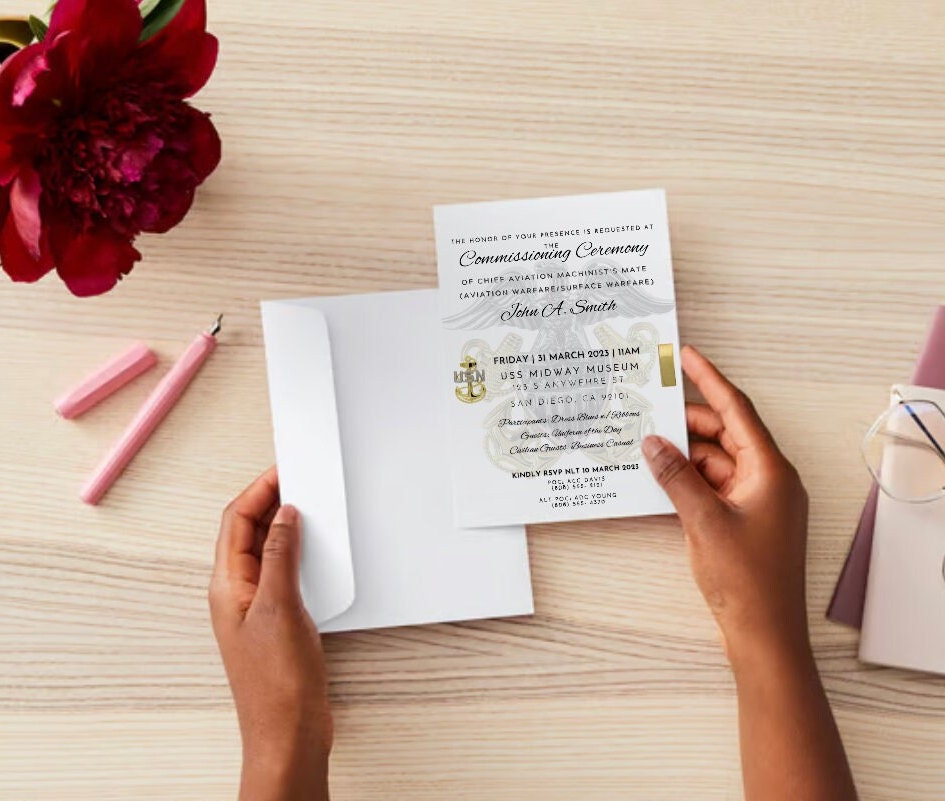 THE HONOR OF YOUR PRESENCE IS REQUESTED AT
THE
Commissioning Ceremony
OF CHIEF AVIATION MACHINIST'S MATE
(AVIATION WARFARE/SURFACE WARFARE)
John A. Smith
FRIDAY | 31 MARCH 2023 | 11AM
USN
USS MIDWAY MUSEUM
123 S ANYWEHRE ST
SAN DIEGO, CA 92101
Participants: Dress Blues w/ Ribbons
Guests: Uniform of the Day
Civilian Guests: Business Casual
KINDLY RSVP NLT 10 MARCH 2023
POC: ACC DAVIS
ALT POC: ADC YOUNG